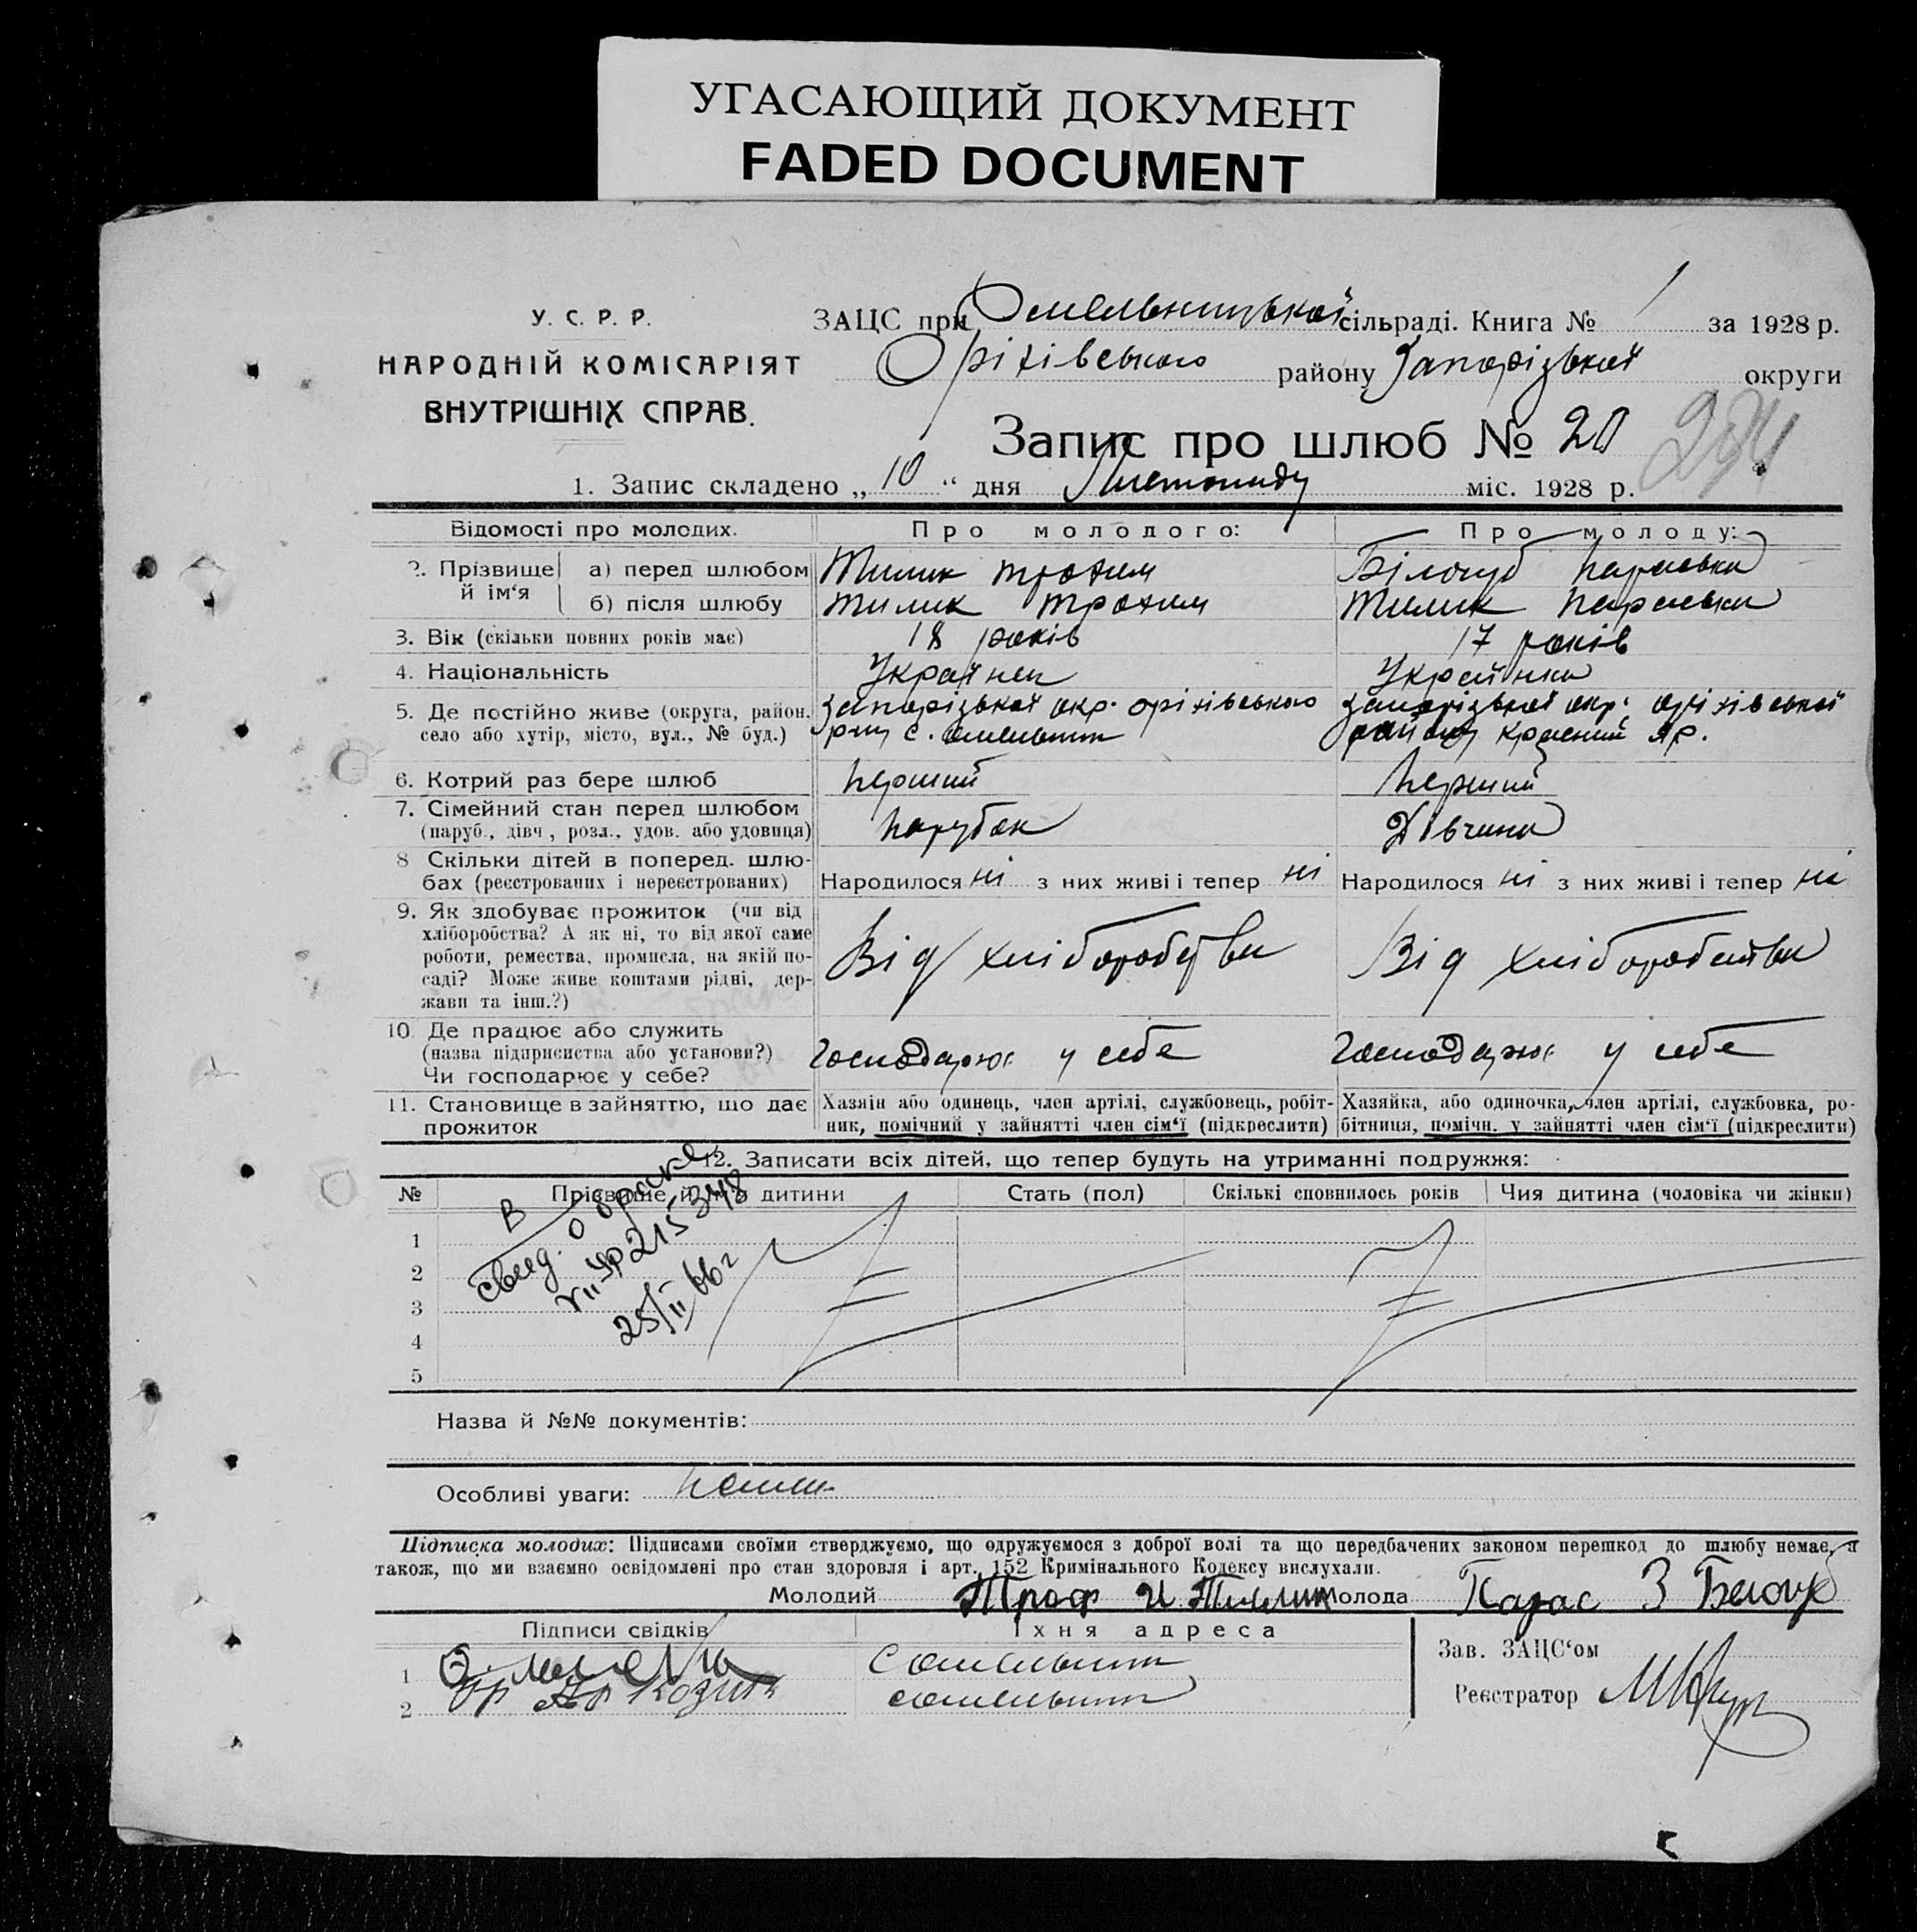 УГАСАЮЩИЙ ДОКУМЕНТ
FADED DOCUMENT
У. С. Р. Р.
НАРОДНІЙ КОМІСАРІЯТ
ВНУТРІШНІХ СПРАВ.
ЗАЦС при Омельницької сільраді. Книга № 1 за 1928 р.
Оріхівського району Запорізької округи
Запис про шлюб № 20
1. Запис складено „ 10 “ дня Листопаду міс. 1928 р.
Відомості про молодих. Про молодого: Про молоду:
2. Прізвище й ім‘я а) перед шлюбом Тилик Трохим Білоуб Параска
б) після шлюбу Тилик Трохим Тилик Параска
3. Вік (скільки повних років має) 18 років 17 років
4. Національність Українец Українка
5. Де постійно живе (округа, район, Запорізької окр. оріхівського Запорізької окр. оріхівської
село або хутір, місто, вул., № буд.) р-ну с. Омельник району Красний яр.
6. Котрий раз бере шлюб перший перший
7. Сімейний стан перед шлюбом
(паруб., дівч., розл., удов. або удовиця) парубок Дівчина
8 Скільки дітей в поперед. шлю-
бах (реєстрованих і нереєстрованих) Народилося ні з них живі і тепер ні Народилося ні з них живі і тепер ні
9. Як здобуває прожиток (чи від
хліборобства? А як ні, то від якої саме
роботи, ремества, промисла, на якій по-
саді? Може живе коштами рідні, дер-
жави та інш.?) Від хліборобства Від хліборобства
10. Де працює або служить
(назва підприємства або установи?)
Чи господарює у себе? Господарює у себе Господарює у себе
11. Становище в зайняттю, що дає Хазяїн або одинець, член артілі, службовець, робіт- Хазяйка, або одиночка, член артілі, службовка, ро-
прожиток ник, помічний у зайнятті член сім‘ї (підкреслити) бітниця, помічн. у зайнятті член сім‘ї (підкреслити)
12. Записати всіх дітей, що тепер будуть на утриманні подружжя:
№ Прізвище й ім‘я дитини Стать (пол) Скількі сповнилось років Чия дитина (чоловіка чи жінки)
1
2
3
4
5
В
свид. о браке
II УР 215348
25/II 66 г
Назва й №№ документів:
Особливі уваги: немає
Підписка молодих: Підписами своїми стверджуємо, що одружуємося з доброї волі та що передбачених законом перешкод до шлюбу немає, а
також, що ми взаємно освідомлені про стан здоровля і арт. 152 Кримінального Кодексу вислухали.
Молодий Троф И. Тилик Молода Парас З Белоуб
Підписи свідків Їхня адреса
Зав. ЗАЦС‘ом
1 С Омельник
2 с Омельник
Реєстратор